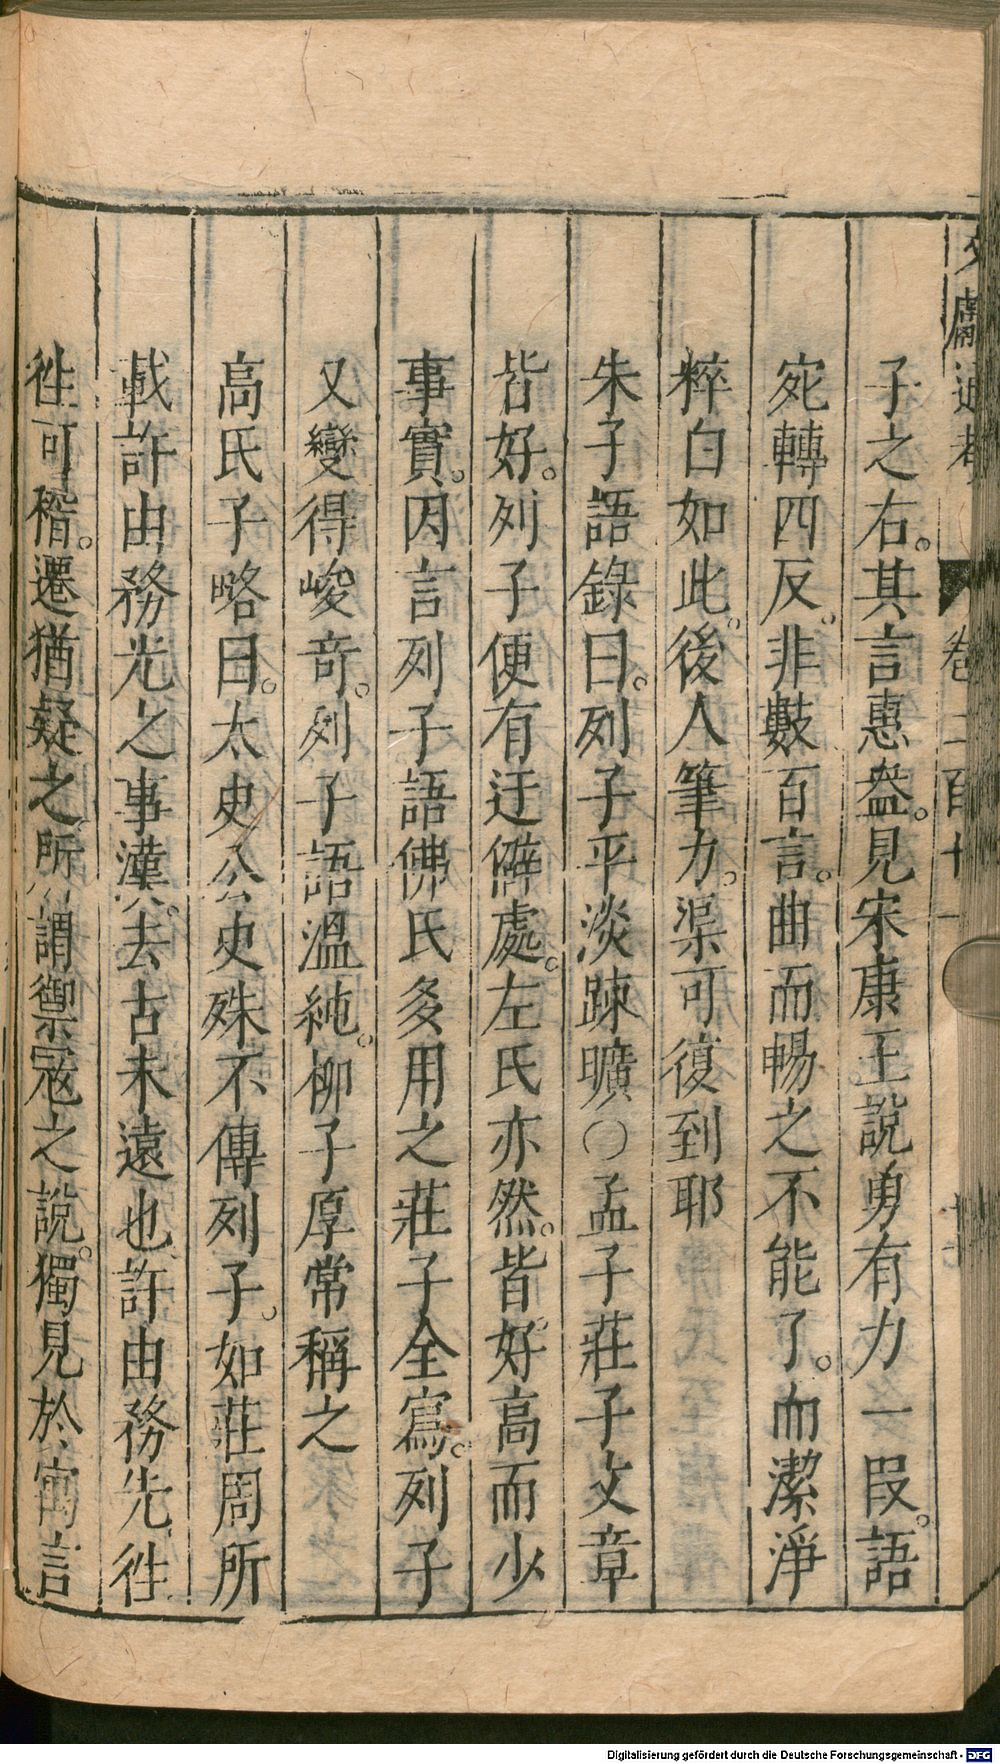 文獻通考 卷二百十一
子之右。其言惠盎。見宋康王說勇有力一段。語
宛轉四反。非數百言。曲而暢之不能了。而潔淨
粹白如此。後人筆力。渠可復到耶
朱子語錄曰。列子平淡踈曠〇孟子莊子文章
皆好。列子便有迂僻處。左氏亦然。皆好高而少
事實。因言列子語佛氏多用之莊子全寫。列子
又變得峻奇。列子語溫純。柳子厚常稱之
高氏子略曰。太史公史殊不傳列子。如莊周所
載許由務光之事漢。去古未遠也許由務光徃
徃可稽。遷猶疑之所謂禦寇之說。獨見於寓言
Digitalisierung gefördert durch die Deutsche Forschungsgemeinschaft - DFG